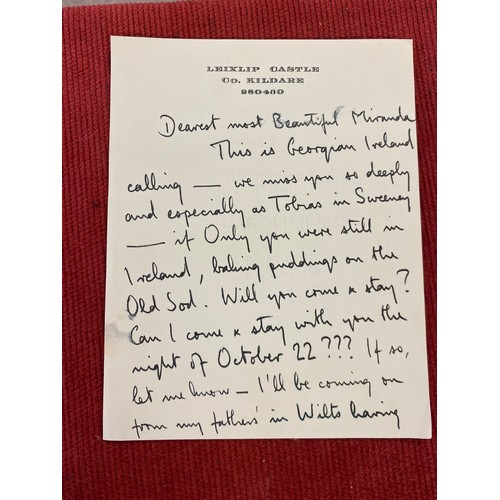 LEIXLIP CASTLE
Co. KILDARE
280430
Dearest most Beautiful Miranda
This is Georgian Ireland
calling — we miss you so deeply
and especially as Tobias in Sweeney
— if Only you were still in
Ireland, baking puddings on the
Old Sod. Will you come & stay?
Can I come & stay with you the
night of October 22??? If so,
let me know — I'll be coming on
from my fathers' in Wilts having